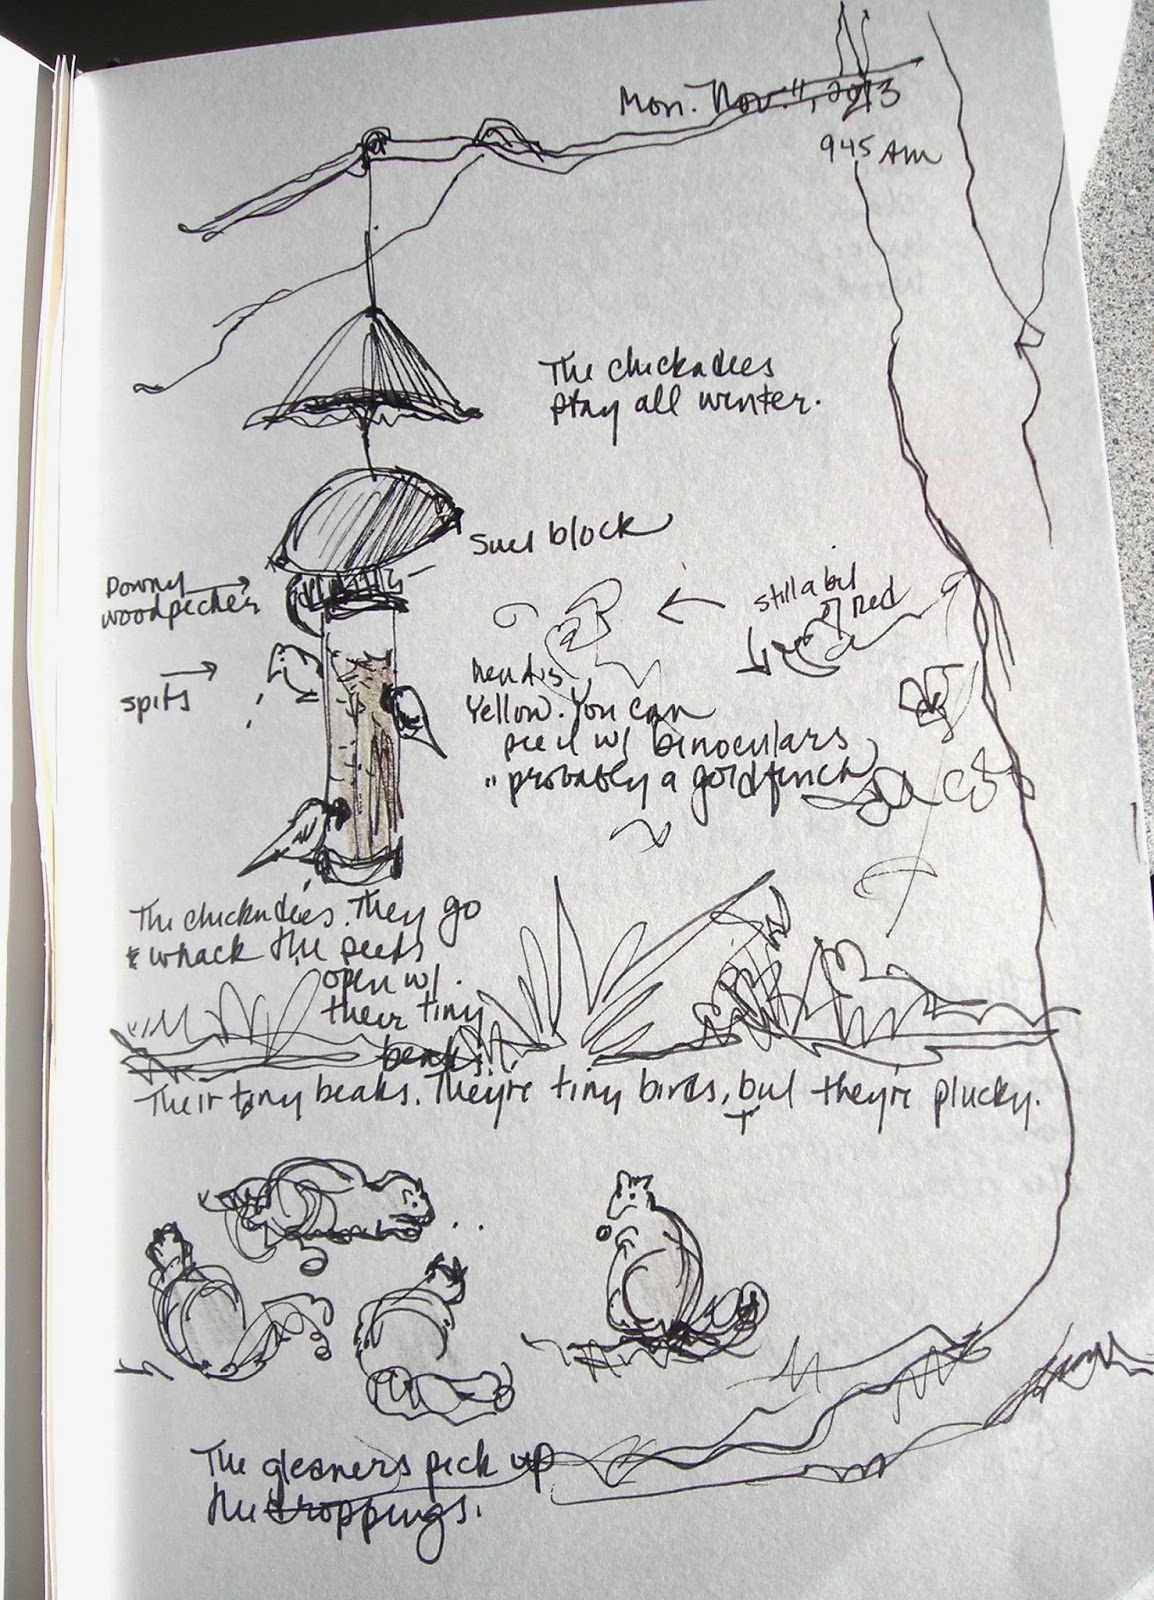 Mon. Nov. 11, 2013
945 AM
The chickadees
stay all winter.
Suet block
Downy
woodpecker
still a bit
of red
spits
Head is
Yellow. You can
see it w/ binoculars
"probably a goldfinch
The chickadees. They go
& whack the seeds
open w/
their tiny
beaks.
Their tiny beaks. They're tiny birds, but they're plucky.
The gleaners pick up
the droppings.